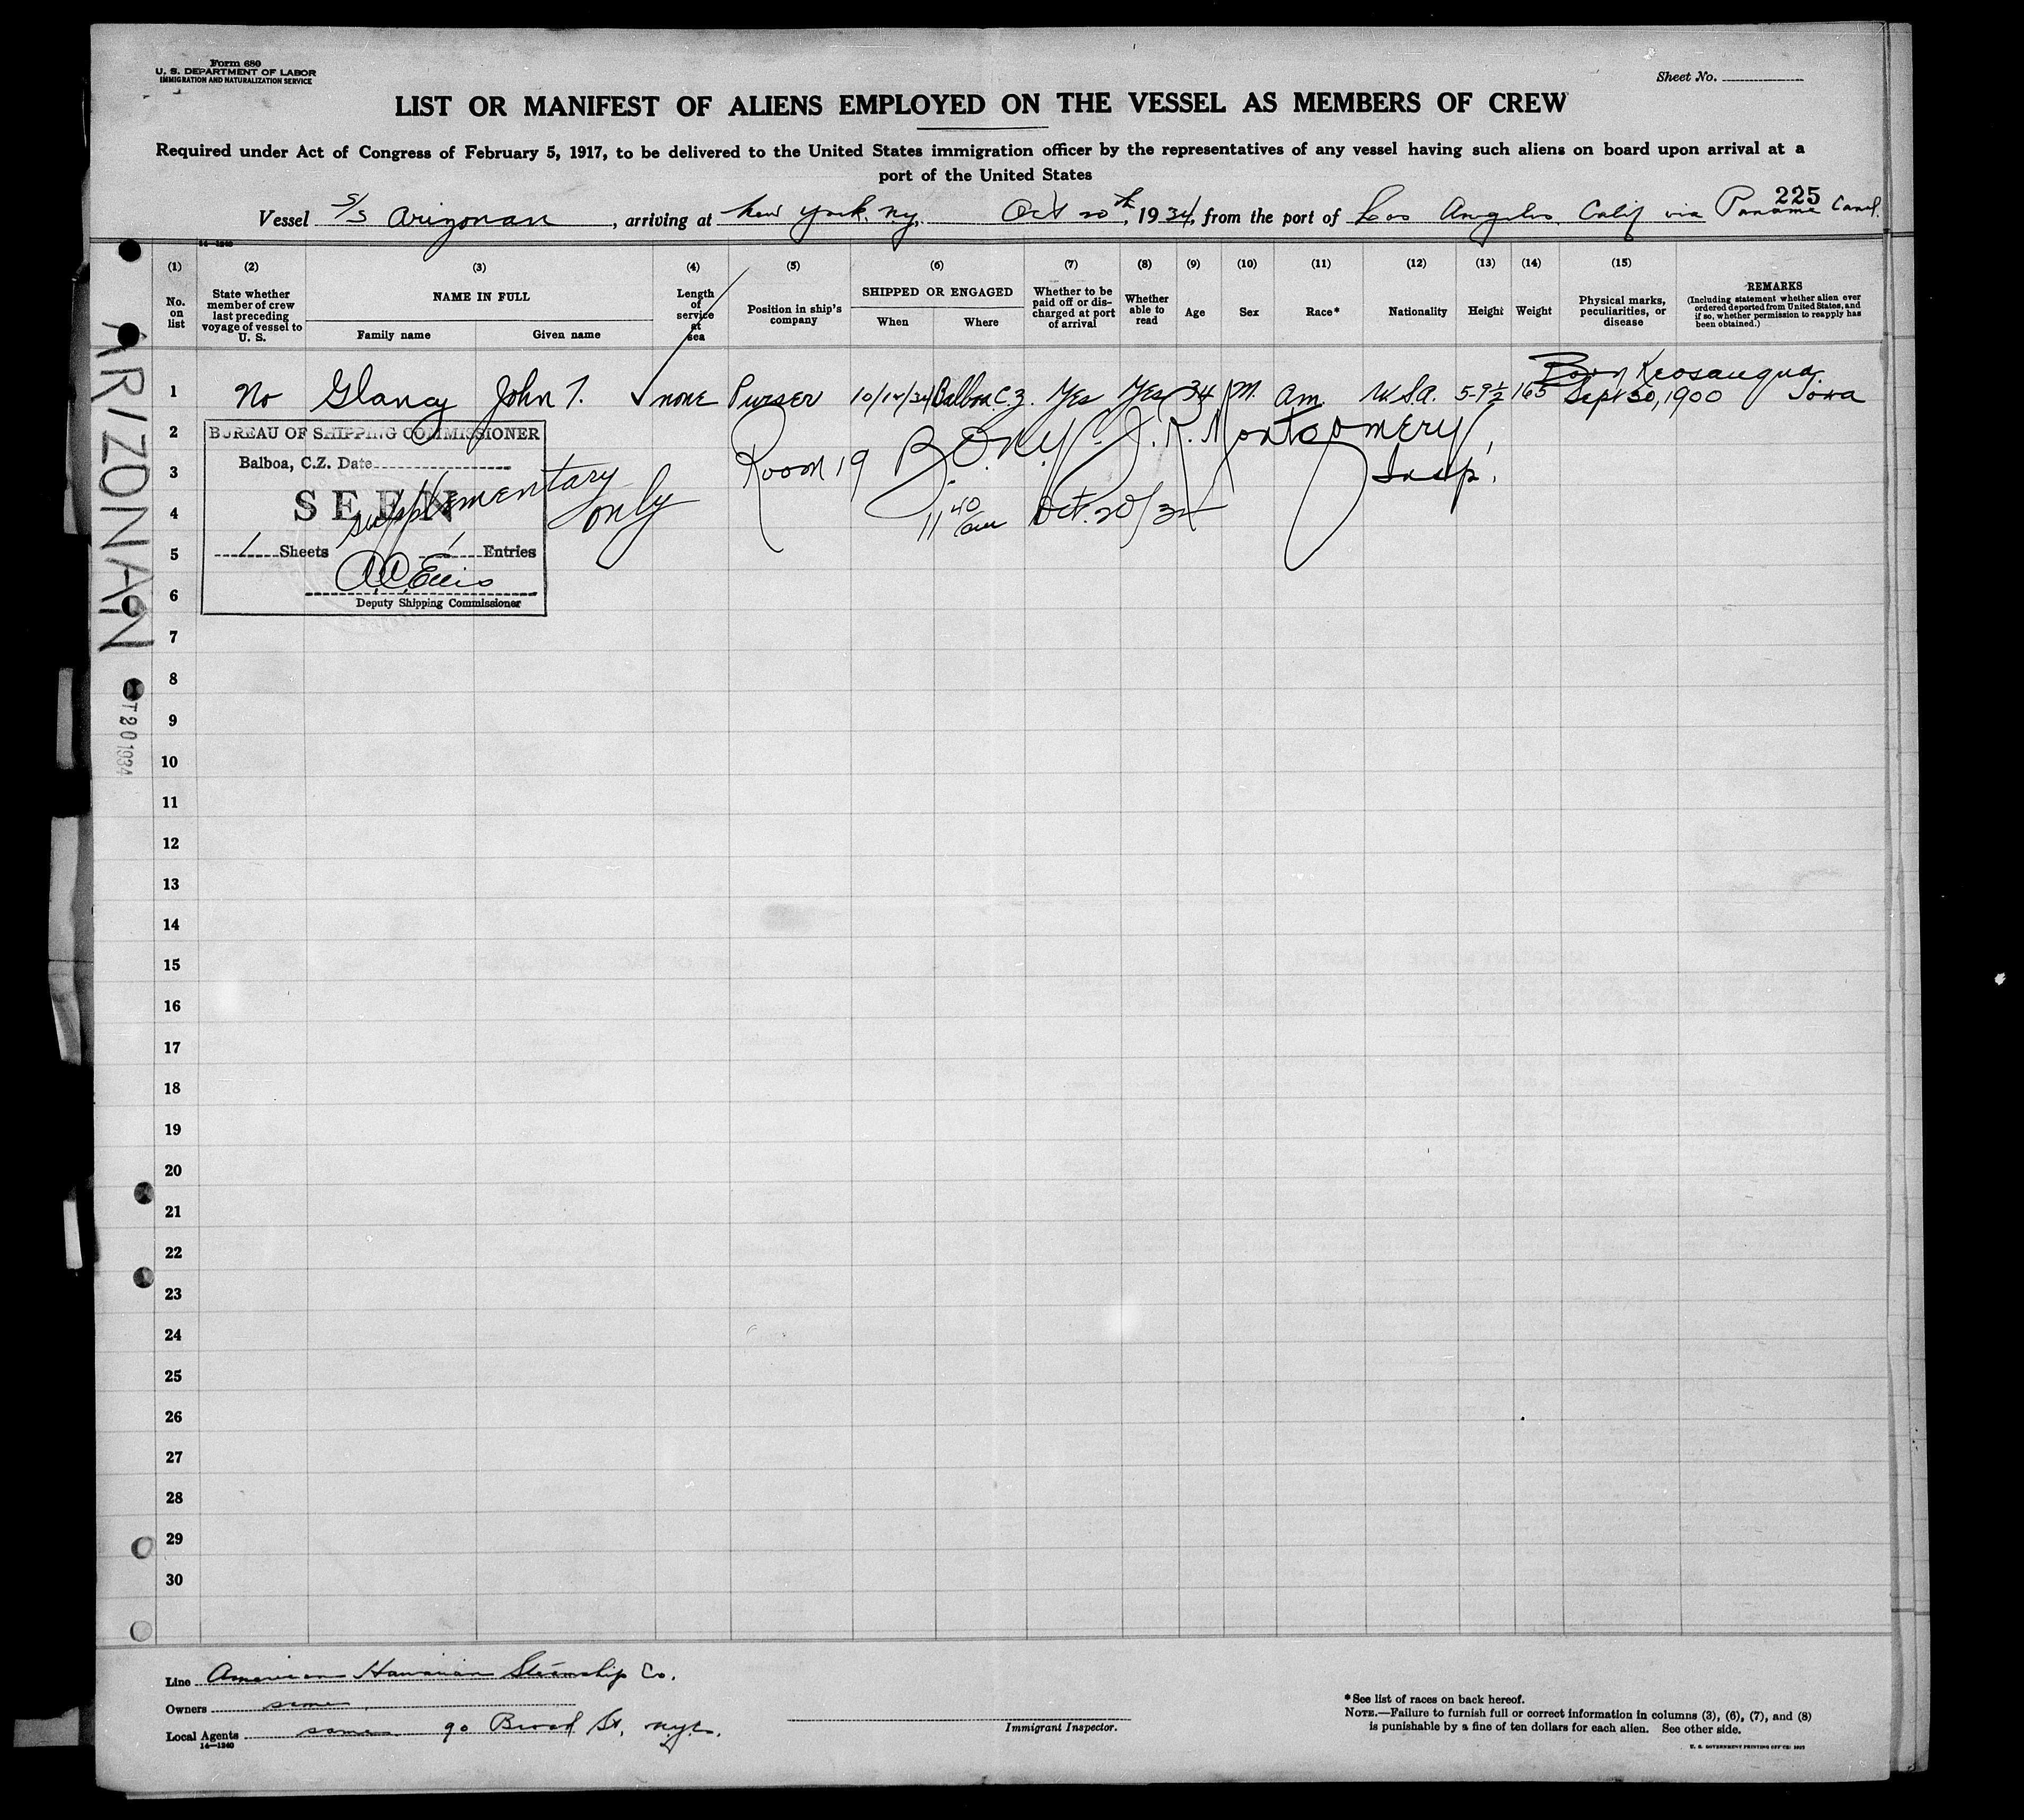 Form 680
U. S. DEPARTMENT OF LABOR
IMMIGRATION AND NATURALIZATION SERVICE
Sheet No.
LIST OR MANIFEST OF ALIENS EMPLOYED ON THE VESSEL AS MEMBERS OF CREW
Required under Act of Congress of February 5, 1917, to be delivered to the United States immigration officer by the representatives of any vessel having such aliens on board upon arrival at a
port of the United States
225
Vessel S/S Arizonan, arriving at New York, N.Y., Oct 20th, 1934, from the port of Los Angeles Calif via Panama Canal.
14-1240
(1) (2) (3) (4) (5) (6) (7) (8) (9) (10) (11) (12) (13) (14) (15)
No. on list
State whether member of crew last preceding voyage of vessel to U. S.
NAME IN FULL
Family name
Given name
Length of service at sea
Position in ship's company
SHIPPED OR ENGAGED
When
Where
Whether to be paid off or discharged at port of arrival
Whether able to read
Age
Sex
Race*
Nationality
Height
Weight
Physical marks, peculiarities, or disease
REMARKS
(Including statement whether alien ever ordered deported from United States, and if so, whether permission to reapply has been obtained.)
Born Keosauqua
1 No Glancy John T. ✓ none Purser Balboa C.Z. Yes Yes 34 M. Am. U.S.A. 5-9½ 165 Sept 30, 1900 Iowa
2
3
4
5
6
7
8
9
10
11
12
13
14
15
16
17
18
19
20
21
22
23
24
25
26
27
28
29
30
BUREAU OF SHIPPING COMMISSIONER
Balboa, C.Z. Date
SEEN
Supplementary only
1 Sheets 1 Entries
Ellis
Deputy Shipping Commissioner
Room 19 J. R. Montgomery
Insp.
11 40 am Oct. 20/34
ARIZONAN
T 20 1934
Line American Hawaiian Steamship Co.
Owners same
Local Agents same 90 Broad St, NYC.
14—1240
Immigrant Inspector.
*See list of races on back hereof.
NOTE.—Failure to furnish full or correct information in columns (3), (6), (7), and (8)
is punishable by a fine of ten dollars for each alien. See other side.